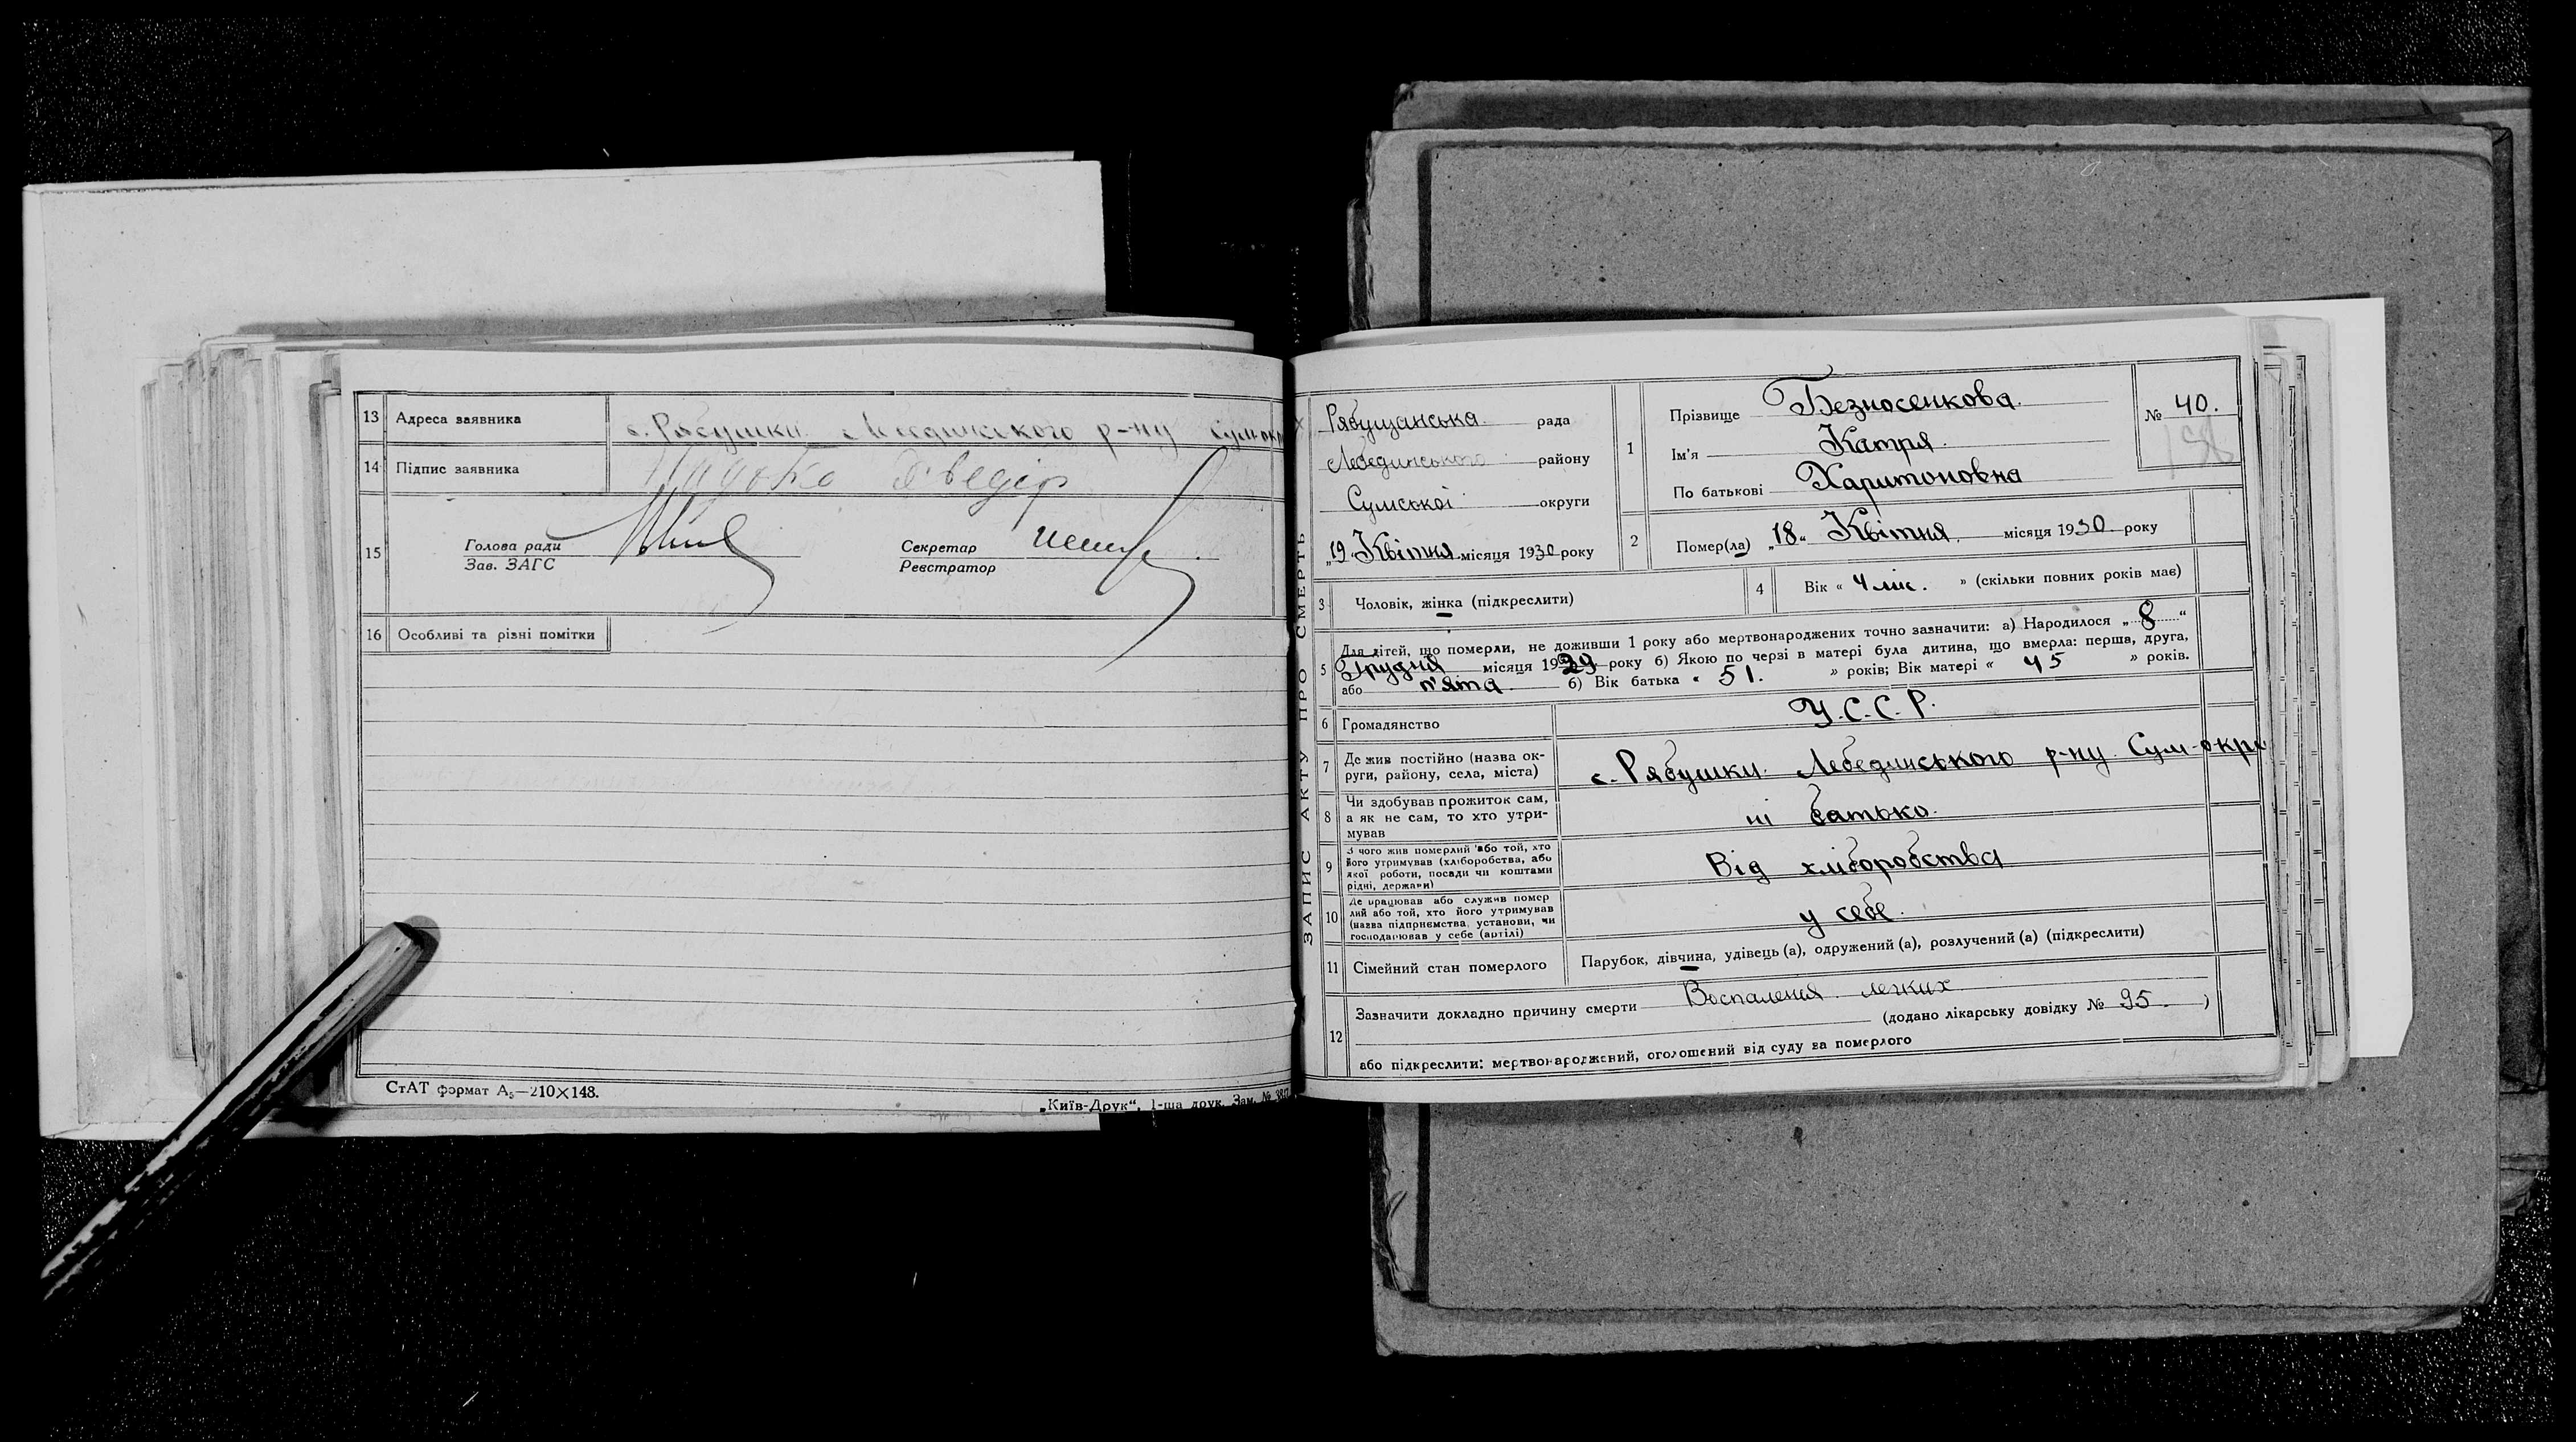 13 Адреса заявника с. Рябушки Лебединського р-ну Сум-окр
14 Підпис заявника
15 Голова ради
Зав. ЗАГС
Секретар
Реєстратор
16 Особливі та різні помітки
СтАТ формат А₅—210×148.
„Київ-Друк“, 1-ша друк. Зам. №
ЗАПИС АКТУ ПРО СМЕРТЬ
Рябушанська рада
Лебединського району
Сумської округи
„19 Квітня місяця 1930 року
1 Прізвище Безносенкова
Ім'я Катря
По батькові Харитоновна
№ 40.
2 Помер(ла) „18“ Квітня місяця 1930 року
3 Чоловік, жінка (підкреслити)
4 Вік « 4 міс. » (скільки повних років має)
5 Для дітей, що померли, не доживши 1 року або мертвонароджених точно зазначити: а) Народилося „8“
Грудня місяця 1929 року б) Якою по черзі в матері була дитина, що вмерла: перша, друга,
або п'ята б) Вік батька « 51. » років; Вік матері « 45 » років.
6 Громадянство У.С.С.Р.
7 Де жив постійно (назва ок-
руги, району, села, міста) с. Рябушки Лебединського р-ну Сум-окр
8 Чи здобував прожиток сам,
а як не сам, то хто утри-
мував ні батько.
9 З чого жив померлий або той, хто
його утримував (хліборобства, або
якої роботи, посади чи коштами
рідні, держави) Від хліборобства
10 Де працював або служив помер
лий або той, хто його утримував
(назва підприємства, установи, чи
господарював у себе (артілі) у себе.
11 Сімейний стан померлого Парубок, дівчина, удівець (а), одружений (а), розлучений (а) (підкреслити)
12 Зазначити докладно причину смерти Воспаления легких
(додано лікарську довідку № 25. )
або підкреслити: мертвонароджений, оголошений від суду за померлого